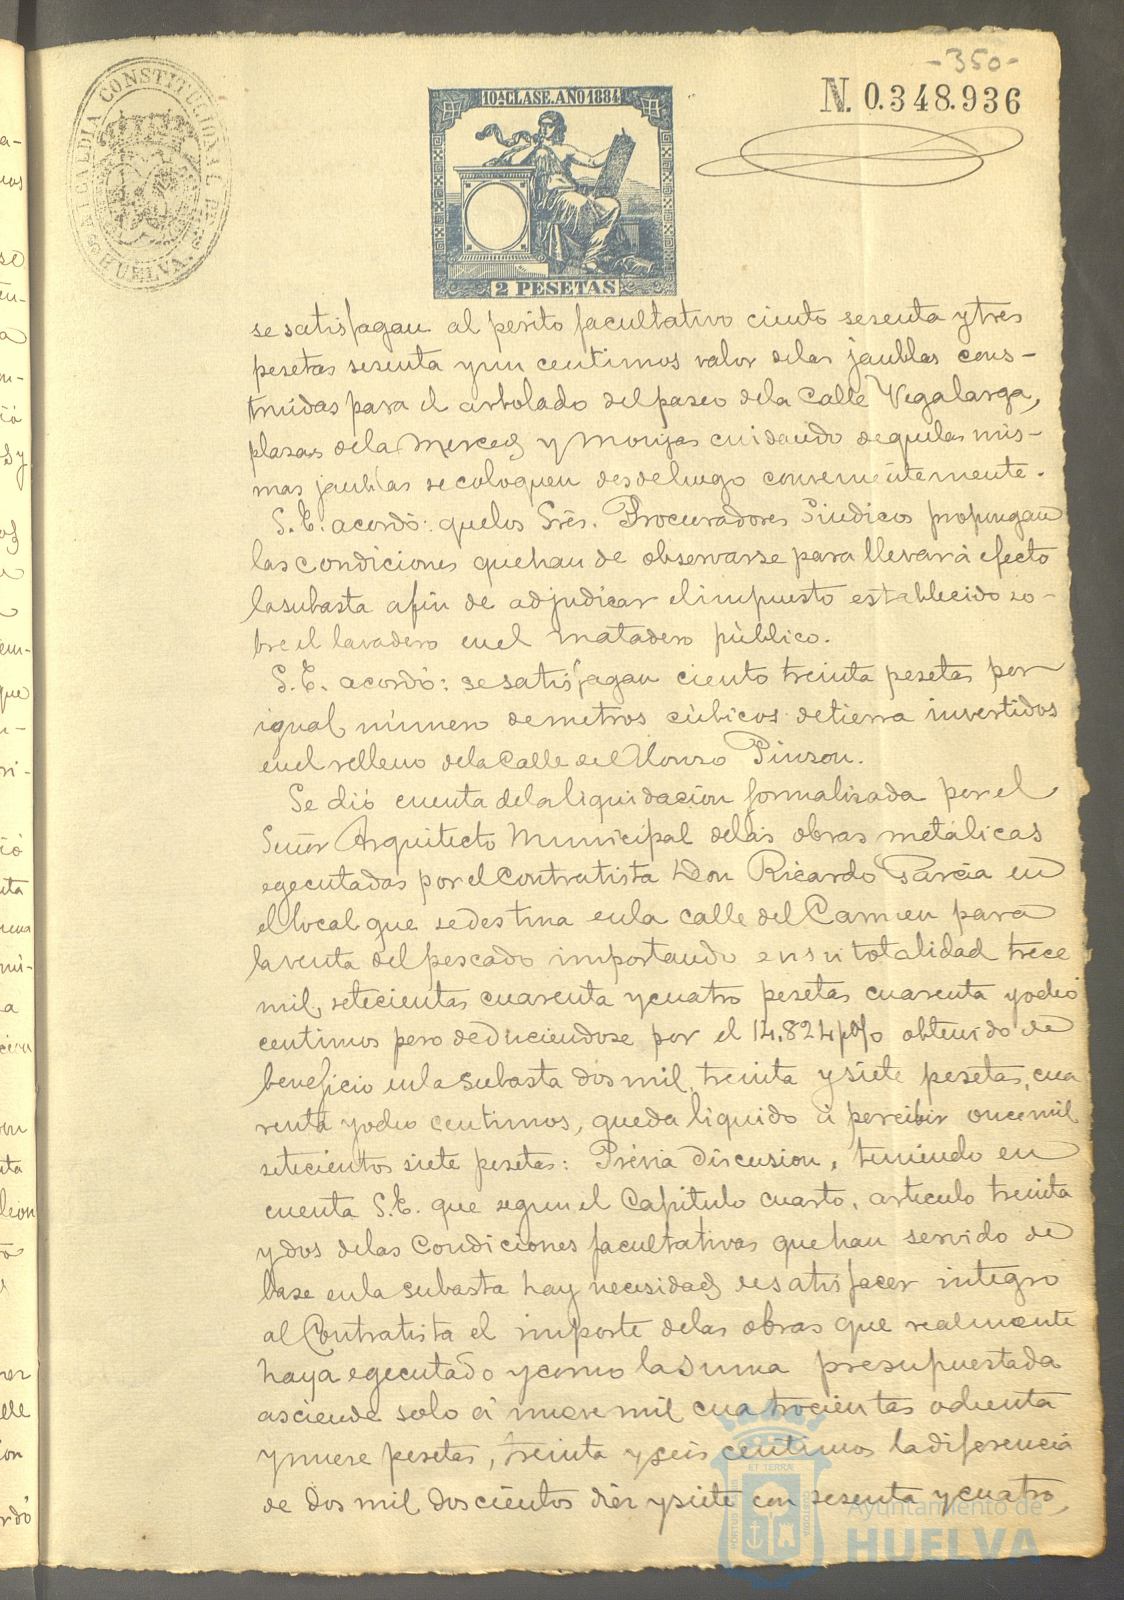 -350-
N. 0.348.936
ALCALDIA CONSTITUCIONAL DE HUELVA.
10ª CLASE. AÑO 1884
2 PESETAS
se satisfagan al perito facultativo ciento sesenta y tres
pesetas sesenta y un centimos valor delas jaublas cons-
truidas para el arbolado del paseo dela Calle Vegalarga,
plazas dela Merced y Monjas cuidando deque las mis-
mas jaublas se coloquen desdeluego convenientemente.
S.E. acordó: quelos Srēs. Procuradores Sindicos propongan
las condiciones quehan de observarse para llevar á efecto
lasubasta afin de adjudicar elimpuesto establecido so-
bre el lavadero en el matadero público.
S.E. acordó: sesatisfagan ciento treinta pesetas por
igual número de metros cúbicos de tierra invertidos
enel relleno dela Calle de Alonso Pinzon.
Se dió cuenta dela liquidación formalizada por el
Señor Arquitecto Municipal delas obras metálicas
egecutadas por el Contratista Don Ricardo Garcia en
el local que se destina enla calle del Carmen para
la venta del pescado importando en su totalidad trece
mil, setecientas cuarenta y cuatro pesetas cuarenta y ocho
centimos pero deduciendose por el 14,824 p% obtenido de
beneficio enla subasta dos mil, treinta y siete pesetas, cua
renta y ocho centimos, queda liquido á percibir once mil
setecientos siete pesetas: Prévia discusion, teniendo en
cuenta S.E. que segun el Capitulo cuarto, articulo treinta
y dos delas Condiciones facultativas que han servido de
base enla subasta hay necesidad de satisfacer integro
al Contratista el importe delas obras que realmente
haya egecutado y como la suma presupuestada
asciende solo á nueve mil cuatrocientas ochenta
y nueve pesetas, treinta y seis centimos la diferencia
de dos mil doscientos diez y siete con sesenta y cuatro
Ayuntamiento de
HUELVA